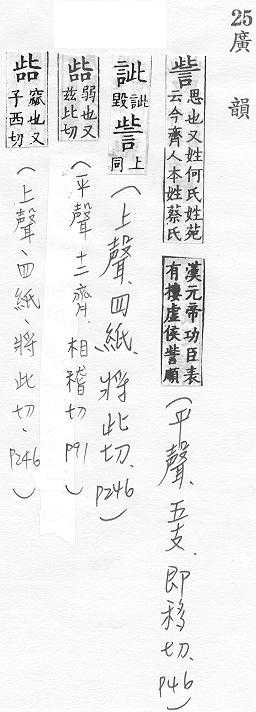 25廣韻
訾思也又姓何氏姓苑云今齊人本姓蔡氏漢元帝功臣表有樓虛侯訾順(平聲、五支、即移切、P46)
訿訿毀訾上同(上聲、四紙、將此切、P246)
啙弱也又茲此切(平聲十二齊、相稽切P91)
啙窳也又子西切(上聲、四紙、將此切、P246)